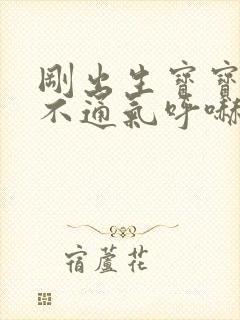 剛出生寶寶
不通氣呼嚇
宿蘆花